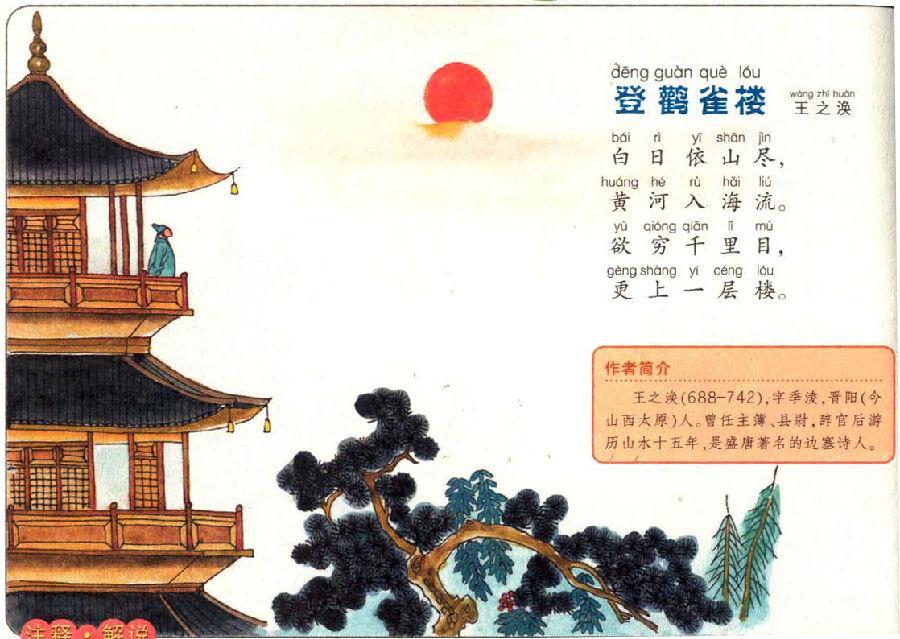 dēng guàn què lóu
登鹳雀楼
wáng zhī huàn
王之涣
bái rì yī shān jìn
白日依山尽，
huáng hé rù hǎi liú
黄河入海流。
yù qióng qiān lǐ mù
欲穷千里目，
gèng shàng yī céng lóu
更上一层楼。
作者简介
王之涣(688-742)，字季凌，晋阳(今
山西太原)人。曾任主簿、县尉，辞官后游
历山水十五年，是盛唐著名的边塞诗人。
注释·解说